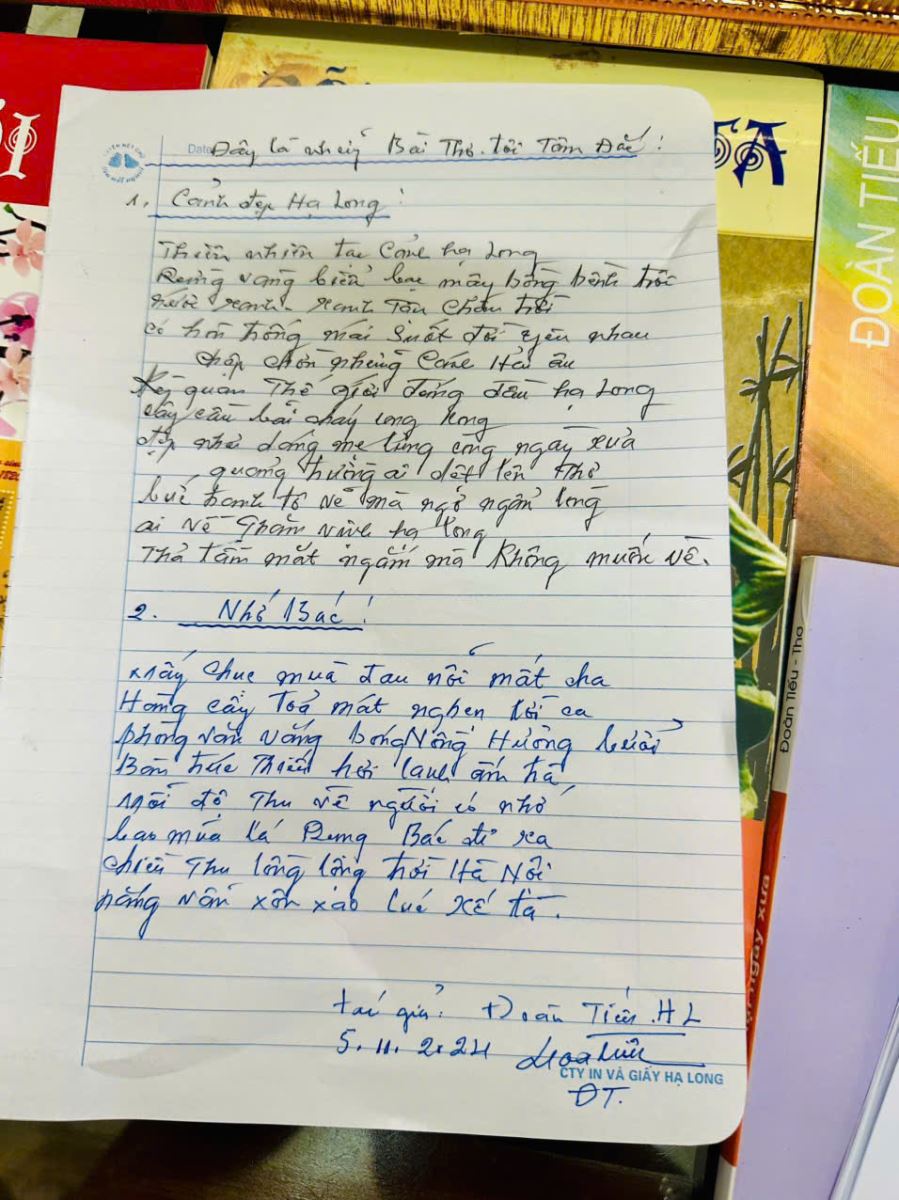 ỘI
TA
ĐOÀN TIẾU
Date
Đây là những Bài Thơ tôi Tâm Đắc!
1. Cảnh đẹp Hạ Long!
Thiên nhiên tạc Cảnh hạ Long
Rừng vàng biển bạc mây bồng bềnh trôi
nước xanh xanh Tận Chân trời
có hòn trống mái Suốt đời yêu nhau
chập chờn những Cánh Hải âu
Kỳ quan Thế giới đứng đầu hạ Long
cây cầu bãi cháy cong cong
đẹp như dáng mẹ lưng còng ngày xưa
quê hương ai dệt lên thơ
bức tranh tô vẽ mà ngỡ ngẩn lòng
ai về Thăm vịnh hạ long
Thả tầm mắt ngắm mà không muốn về.
2. Nhớ Bác!
mấy chục mùa đau nỗi mất cha
Hàng cây Toả mát nghẹn lời ca
phòng văn vắng bóng Nồng Hương bưởi
Bàn trúc Thiếu hơi lạnh ấm trà
mỗi độ Thu về người có nhớ
bao mùa lá Rụng Bác đi xa
chiều Thu lồng lộng trời Hà Nội
nắng vẫn xôn xao lúc xế tà.
tác giả: Đoàn Tiếu. HL
5.11.2024
CTY IN VÀ GIẤY HẠ LONG
ĐT.
Đoàn Tiếu - Thơ
ngày xưa